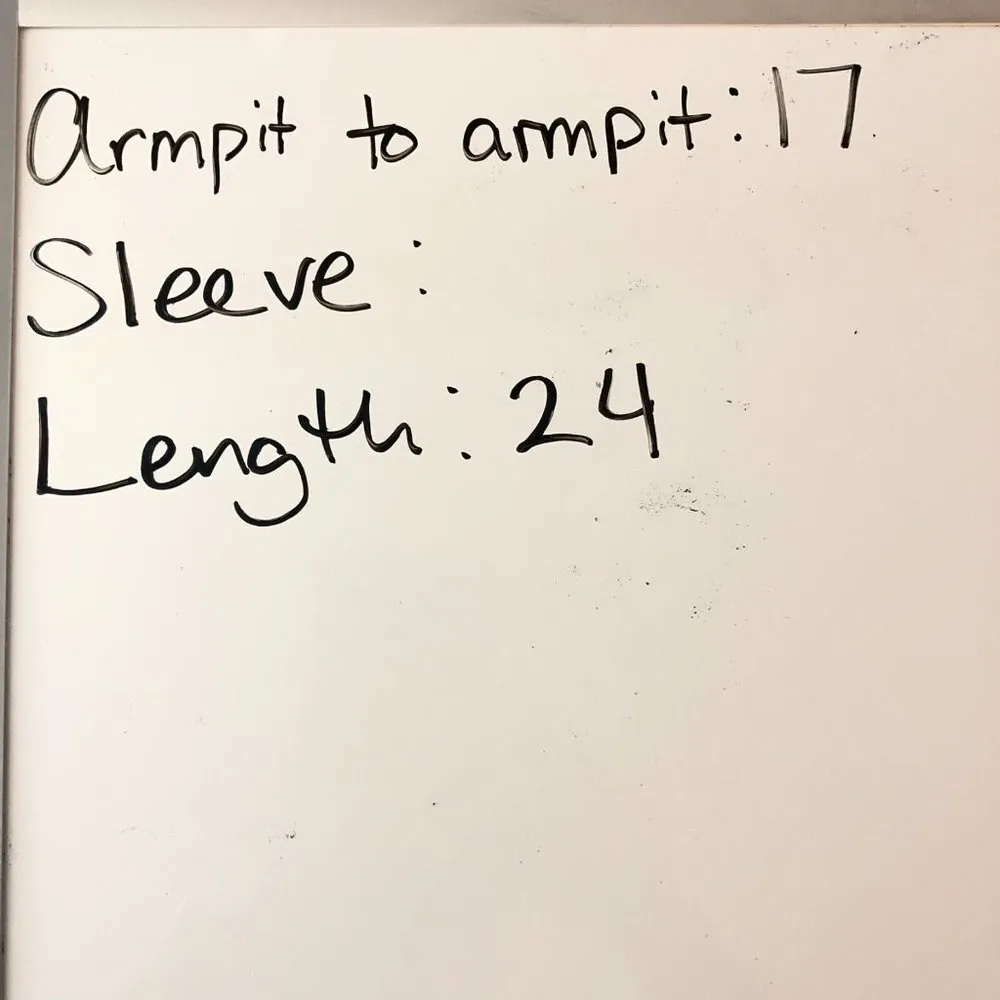 Armpit to armpit: 17
Sleeve:
Length: 24